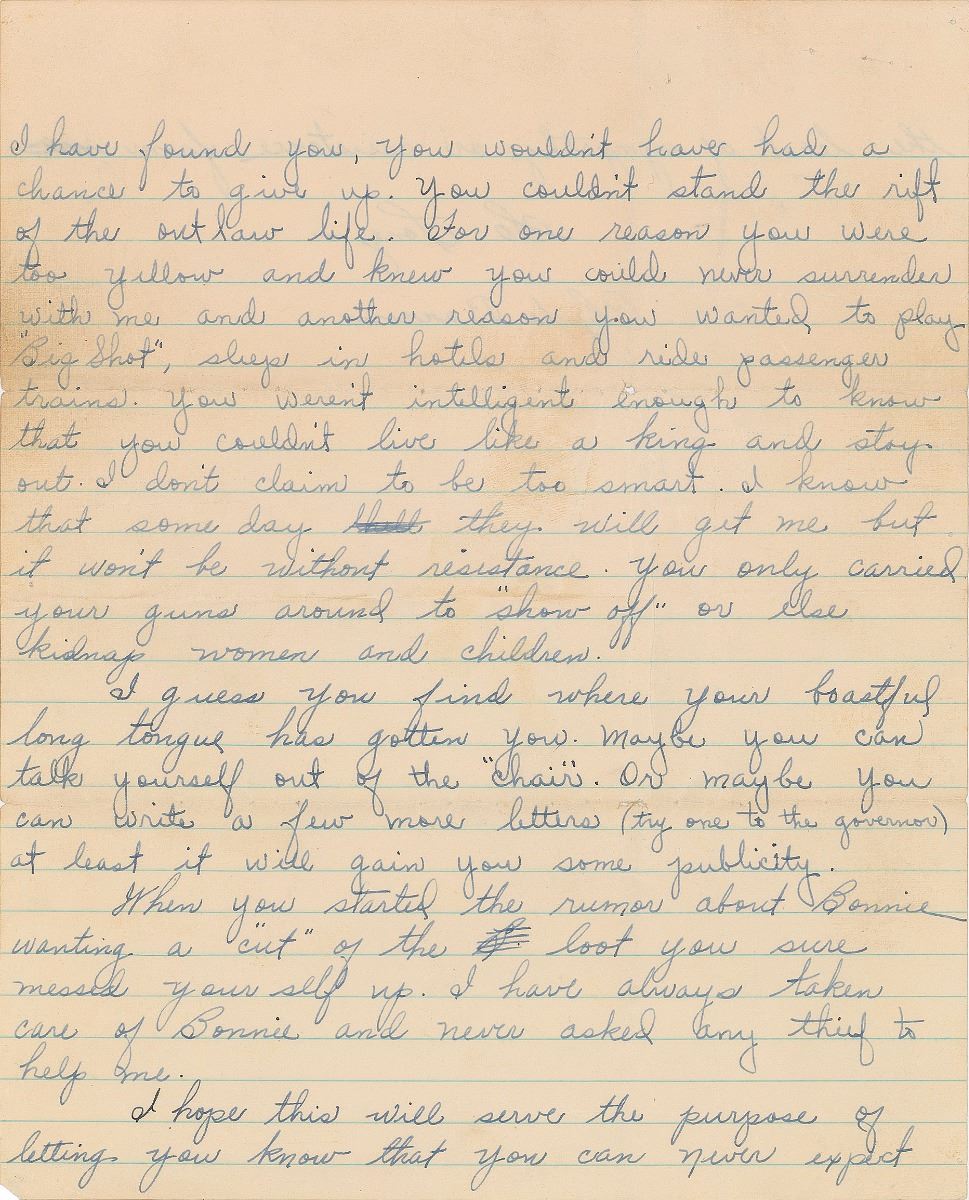 I have found you, you wouldn't have had a
chance to give up. You couldn't stand the rift
of the outlaw life. For one reason you were
too yillow and knew you could never surrender
with me and another reason you wanted to play
"Big Shot", sleep in hotels and ride passenger
trains. You weren't intelligent enough to know
that you couldn't live like a king and stay
out. I don't claim to be too smart. I know
that some day they will get me but
it won't be without resistance. You only carried
your guns around to "show off" or else
kidnap women and children.
I guess you find where your boastful
long tongue has gotten you. Maybe you can
talk yourself out of the "chair". Or maybe you
can write a few more letters (try one to the governor)
at least it will gain you some publicity.
When you started the rumor about Bonnie
wanting a "cut" of the loot you sure
messed your self up. I have always taken
care of Bonnie and never asked any thief to
help me.
I hope this will serve the purpose of
letting you know that you can never expect